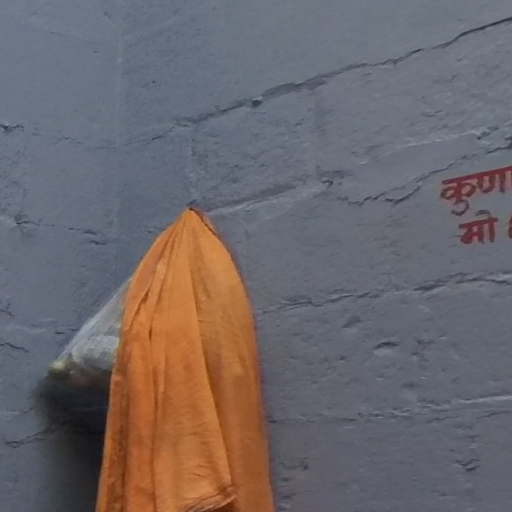 कुणा
मो